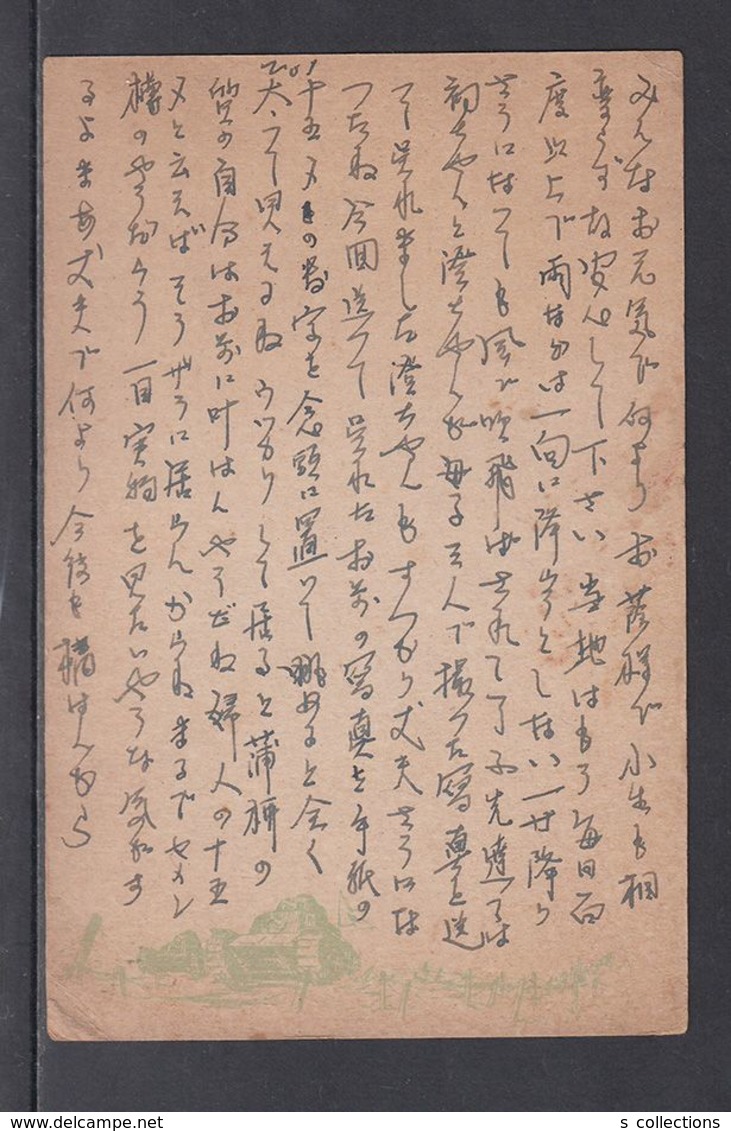 みんなお元気で何より お蔭様で小生も相
変らず故安心して下さい 当地はもう毎日百
度以上で雨なのは一向に降らうとしない 一寸降り
さうになっても風で吹飛ばされて了ふ 先達ては
初ちゃんと澄ちゃんが母子三人で撮った写真を送
って呉れました 澄ちゃんもすっかり丈夫さうにな
ったね 今回送って呉れたお前の写真を手紙の
十五〆の数字を念頭に置いて眺めると全く
太って見えるね うっかりして居ると蒲柳の
質の自分はお前に叶はんやうだね 婦人の十五
〆と云えばそうザラに居らんからね まるでセメン
樽のやうだらう 一目実物を見たいやうな気がす
るよ まあ丈夫で何より 今後も
s collections